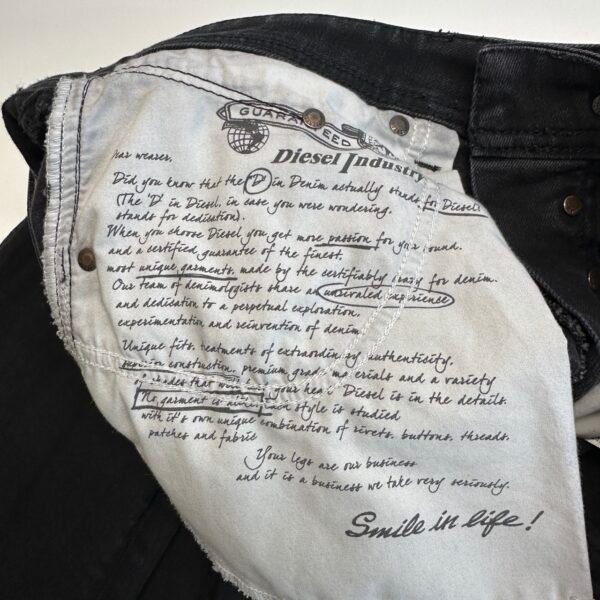 GUARA EED
Diesel Industry
ear wearer,
Did you know that the 'D' in Denim actually stands for Diesel?
(The 'D' in Diesel, in case you were wondering,
stands for dedication).
When you choose Diesel you get more passion for your ound,
and a certified guarantee of the finest,
most unique garments, made by the certifiably crazy for denim.
Our team of denimologists share an unrivaled experience
and dedication to a perpetual exploration,
experimentation and reinvention of denim.
Unique fits, eatments of extraordinary authenticity,
construction, premium grad materials and a variety
of shades that your head Diesel is in the details.
No garment is each style is studied
with it's own unique combination of rivets, buttons, threads,
patches and fabric
Your legs are our business
and it is a business we take very seriously.
Smile in life!